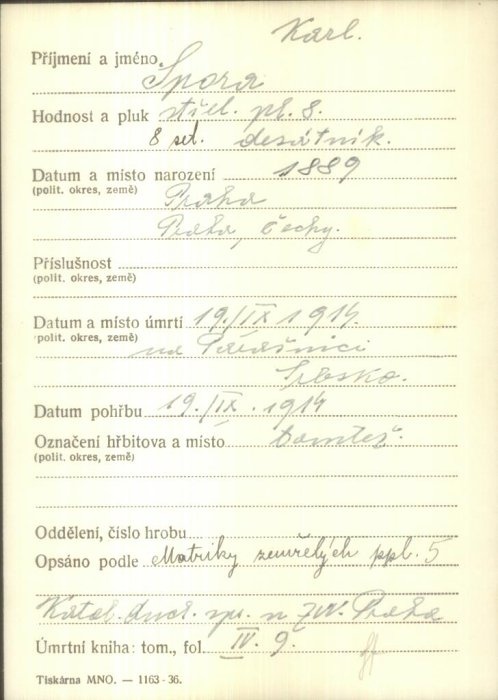 Karl.
Příjmení a jméno Spora
Hodnost a pluk střel. pl. 8.
8 set. desátník.
Datum a místo narození 1889
(polit. okres, země) Praha
Praha, Čechy.
Příslušnost
(polit. okres, země)
Datum a místo úmrtí 19./IX 1914.
(polit. okres, země) na
Srbsko.
Datum pohřbu 19./IX. 1914
Označení hřbitova a místo tamtéž.
(polit. okres, země)
Oddělení, číslo hrobu
Opsáno podle Matriky zemřelých ppl. 5
Katol. duch. spr. u ZVV. Praha
Úmrtní kniha: tom., fol. IV. 9.
Tiskárna MNO. — 1163-36.